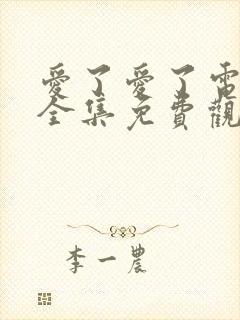 愛了愛了電
全集免費觀
李一農